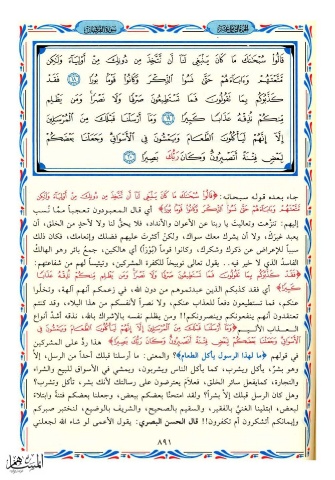 الجزء الثامن عشر
سورة الفرقان
قَالُوا۟ سُبْحَٰنَكَ مَا كَانَ يَنۢبَغِى لَنَآ أَن نَّتَّخِذَ مِن دُونِكَ مِنْ أَوْلِيَآءَ وَلَٰكِن
مَّتَّعْتَهُمْ وَءَابَآءَهُمْ حَتَّىٰ نَسُوا۟ ٱلذِّكْرَ وَكَانُوا۟ قَوْمًۢا بُورًا ١٨ فَقَدْ
كَذَّبُوكُم بِمَا تَقُولُونَ فَمَا تَسْتَطِيعُونَ صَرْفًا وَلَا نَصْرًا وَمَن يَظْلِم
مِّنكُمْ نُذِقْهُ عَذَابًا كَبِيرًا ١٩ وَمَآ أَرْسَلْنَا قَبْلَكَ مِنَ ٱلْمُرْسَلِينَ
إِلَّآ إِنَّهُمْ لَيَأْكُلُونَ ٱلطَّعَامَ وَيَمْشُونَ فِى ٱلْأَسْوَاقِ وَجَعَلْنَا بَعْضَكُمْ
لِبَعْضٍ فِتْنَةً أَتَصْبِرُونَ وَكَانَ رَبُّكَ بَصِيرًا ٢٠
جاء بعده قوله سبحانه: ﴿قَالُوا سُبْحَانَكَ مَا كَانَ يَنبَغِي لَنَا أَن نَّتَّخِذَ مِن دُونِكَ مِنْ أَوْلِيَاءَ وَلَٰكِن
مَّتَّعْتَهُمْ وَآبَاءَهُمْ حَتَّىٰ نَسُوا الذِّكْرَ وَكَانُوا قَوْمًا بُورًا﴾ أي قال المعبودون تعجباً مما نُسب
إليهم: تنزَّهت وتعاليت يا ربنا عن الأعوان والأنداد، فلا يحقُّ لنا ولا لأحدٍ من الخلق، أن
يعبد غيرك، ولا أن يشرك معك سواك، ولكنْ أكثرتَ عليهم فضلك وإنعامك، فكان ذلك
سبباً للإعراض عن ذكرك وشكرك، وكانوا قوماً بُوراً أي هالكين، جمعُ بائر وهو الهالكُ
الفاسدُ الذي لا خير فيه .. يقول تعالى توبيخاً للكفرة المشركين، وتيئيساً لهم من شفاعتهم:
﴿فَقَدْ كَذَّبُوكُم بِمَا تَقُولُونَ فَمَا تَسْتَطِيعُونَ صَرْفًا وَلَا نَصْرًا وَمَن يَظْلِم مِّنكُمْ نُذِقْهُ عَذَابًا
كَبِيرًا﴾ أي فقد كذبكم الذين عبدتموهم من دون الله، في زعمكم أنهم آلهة، وتخلَّوا
عنكم، فما تستطيعون دفعاً للعذاب عنكم، ولا نصراً لأنفسكم من هذا البلاء، وقد كنتم
تعتقدون أنهم ينفعونكم وينصرونكم!! ومن يظلم نفسه بالإشراك بالله، نذقه أشدَّ أنواع
العذاب الأليم ﴿وَمَا أَرْسَلْنَا قَبْلَكَ مِنَ الْمُرْسَلِينَ إِلَّا إِنَّهُمْ لَيَأْكُلُونَ الطَّعَامَ وَيَمْشُونَ فِي
الْأَسْوَاقِ وَجَعَلْنَا بَعْضَكُمْ لِبَعْضٍ فِتْنَةً أَتَصْبِرُونَ وَكَانَ رَبُّكَ بَصِيرًا﴾ هذا ردٌّ على المشركين
في قولهم ﴿ما لهذا الرسول يأكل الطعام﴾؟ والمعنى: ما أرسلنا قبلك أحداً من الرسل، إلاَّ
وهو بشرٌ، يأكل ويشرب، كما يأكل الناس ويشربون، ويمشي في الأسواق للبيع والشراء
والتجارة، كمايفعل سائر الخلق، فعلامَ يعترضون على رسالتك لأنك بشر، تأكل وتشرب؟
وهل كان الرسل قبلك إلاَّ بشراً؟ ولقد امتحنَّا بعضكم ببعض، وجعلنا بعضكم فتنةً وابتلاءً
لبعض، ابتلينا الغنيَّ بالفقير، والسقيم بالصحيح، والشريف بالوضيع، لنختبر صبركم
وإيمانكم أتشكرون أم تكفرون!! قال الحسن البصري: يقول الأعمى لو شاء الله لجعلني
٨٩١